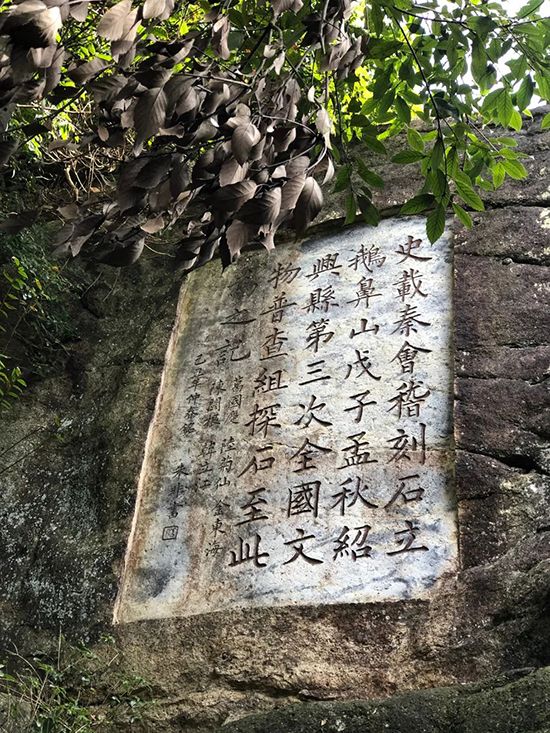 史載秦會稽刻石立
鵝鼻山戊子孟秋紹
興縣第三次全國文
物普查組探石至此
之記
葛國慶 陸菊山 金東海